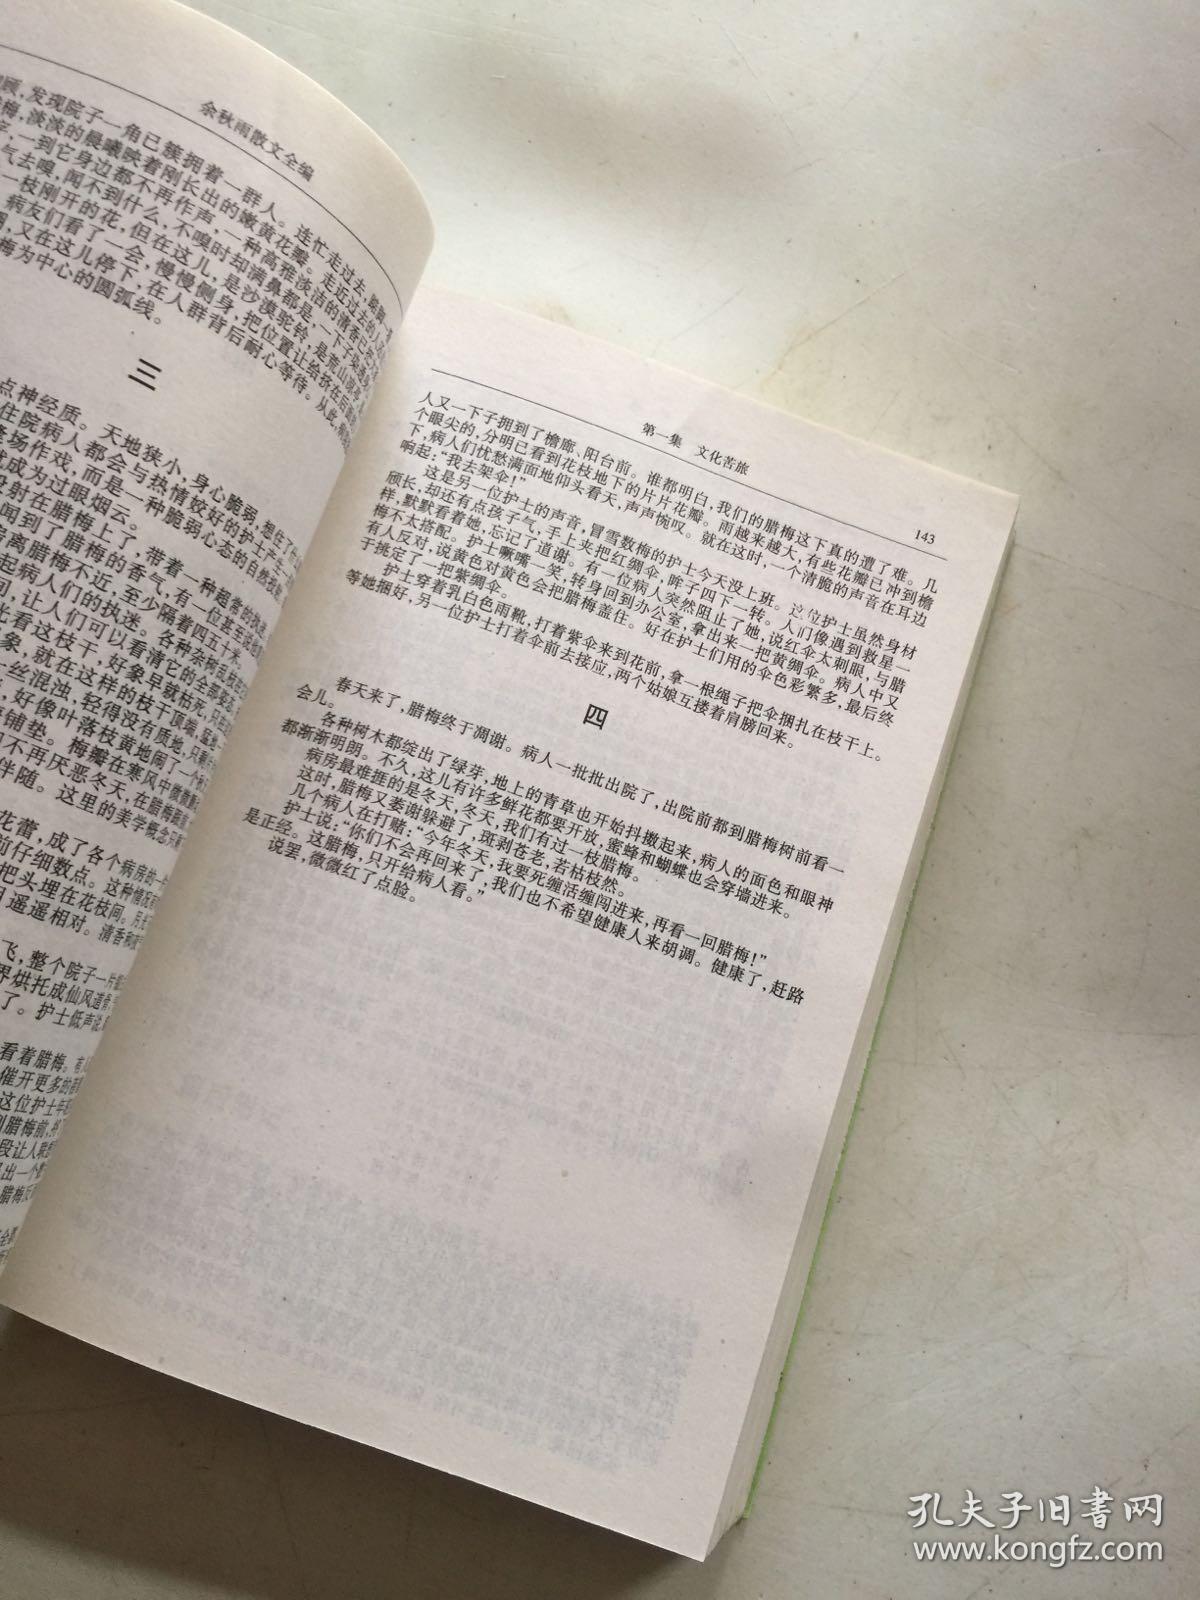 余秋雨散文全编
顾,发现院子一角已簇拥着一群人。连忙走过去,
梅,淡淡的晨曦映着刚长出的嫩黄花瓣。走近过去的人
一到它身边都不再作声,一种高雅淡洁的清香已
气去嗅,闻不到什么,不嗅时却满鼻都是,一下子染透
一枝刚开的花,但在这儿,是沙漠驼铃,是荒山
病友们看了一会,慢慢侧身,把位置让给挤在后面
又在这儿停下,在人群背后耐心等待。从此,
梅为中心的圆弧线。
三
点神经质。天地狭小,身心脆弱,想住了
住院病人都会与热情姣好的护士产生
逢场作戏,而是一种脆弱心态的自然投射
就成为过眼烟云。
投射在腊梅上了,带着一种超常的执迷
闻到了腊梅的香气,有一位甚至说
离腊梅不近,至少隔着四五十米。
起病人们的执迷。各种杂树乱枝
间,让人们可以看清它的全部姿态
光看这枝干,好象早就枯死,只
象,就在这样的枝干顶端,猛地
一丝混浊,轻得没有质地,只剩
好像叶落枝黄地闹了一个秋
铺垫。梅瓣在寒风中微微
不再厌恶冬天,在腊梅
伴随。这里的美学概念只
花蕾,成了各个病房的一
前仔细数点。这种情况
把头埋在花枝间。月光
遥遥相对。清香和
飞,整个院子一片
界烘托成仙风道骨
了。护士低声说
看着腊梅。有
催开更多的
这位护士年
到腊梅前,
段让人联
出一个
腊梅反
第一集 文化苦旅
143
人又一下子拥到了檐廊、阳台前。谁都明白,我们的腊梅这下真的遭了难。几
个眼尖的,分明已看到花枝地下的片片花瓣。雨越来越大,有些花瓣已冲到檐
下,病人们忧愁满面地仰头看天,声声惋叹。就在这时,一个清脆的声音在耳边
响起:“我去架伞!”
这是另一位护士的声音,冒雪数梅的护士今天没上班。这位护士虽然身材
颀长,却还有点孩子气,手上夹把红绸伞,眸子四下一转。人们像遇到救星一
样,默默看着她,忘记了道谢。有一位病人突然阻止了她,说红伞太刺眼,与腊
梅不太搭配。护士噘嘴一笑,转身回到办公室,拿出来一把黄绸伞。病人中又
有人反对,说黄色对黄色会把腊梅盖住。好在护士们用的伞色彩繁多,最后终
于挑定了一把紫绸伞。
护士穿着乳白色雨靴,打着紫伞来到花前,拿一根绳子把伞捆扎在枝干上。
等她捆好,另一位护士打着伞前去接应,两个姑娘互搂着肩膀回来。
四
春天来了,腊梅终于凋谢。病人一批批出院了,出院前都到腊梅树前看一
会儿。
各种树木都绽出了绿芽,地上的青草也开始抖擞起来,病人的面色和眼神
都渐渐明朗。不久,这儿有许多鲜花都要开放,蜜蜂和蝴蝶也会穿墙进来。
病房最难捱的是冬天,冬天,我们有过一枝腊梅。
这时,腊梅又萎谢躲避了,斑剥苍老,若枯枝然。
几个病人在打赌:“今年冬天,我要死缠活缠闯进来,再看一回腊梅!”
护士说:“你们不会再回来了,我们也不希望健康人来胡调。健康了,赶路
是正经。这腊梅,只开给病人看。”
说罢,微微红了点脸。
孔夫子旧书网
www.kongfz.com